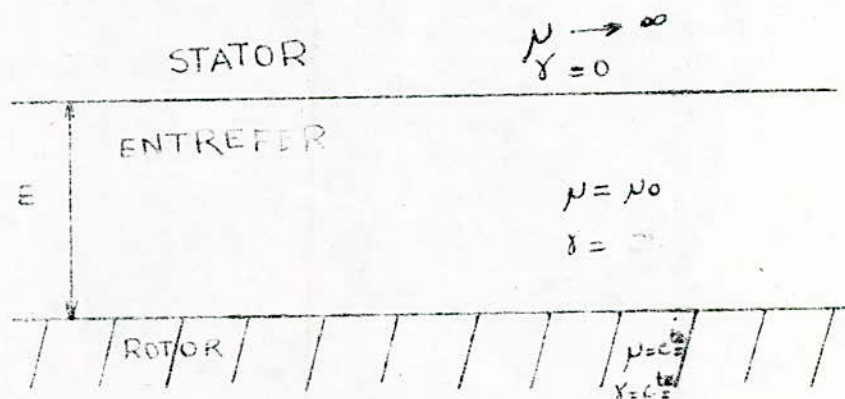 STATOR
μ → ∞
γ = 0
ENTREFER
E
μ = μ₀
γ =
ROTOR
μ = cte
γ = cte